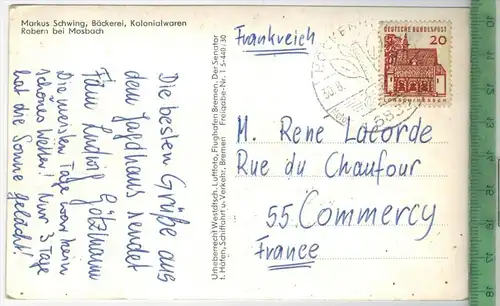 Markus Schwing, Bäckerei, Kolonialwaren
Robern bei Mosbach
Die besten Grüße aus
dem Jagdhaus sendet
Fam Ludwig Götzmann
Die meisten Tage war kein
schönes Wetter! Nur 3 Tage
hat die Sonne gelacht!
Urheberrecht Westdtsch. Luftfoto, Flughafen Bremen. Der Senator
f. Häfen, Schiffahrt u. Verkehr, Bremen Freigabe-Nr. 1 5-440/30
Frankreich
DEUTSCHE BUNDESPOST
20
LORSCH/HESSEN
30.8.
M. Rene Lacorde
Rue du Chaufour
55. Commercy
France